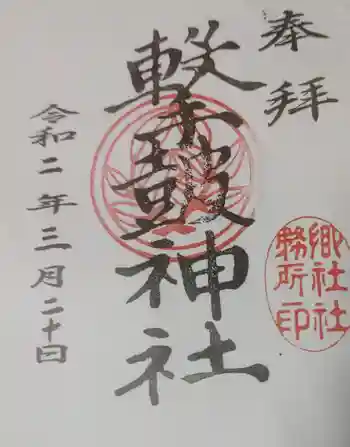 奉拝
撃鼓神社
令和二年三月二十日
郷社社務所印